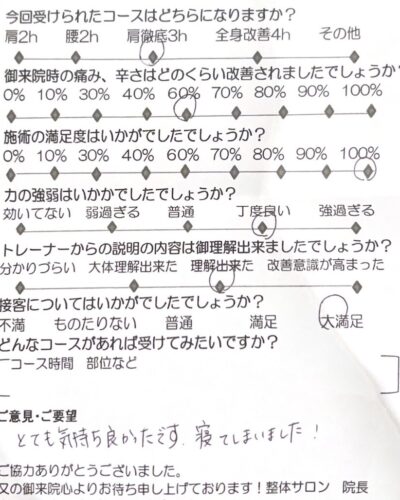 今回受けられたコースはどちらになりますか？
肩2h 腰2h 肩徹底3h 全身改善4h その他
御来院時の痛み、辛さはどのくらい改善されましたでしょうか？
0% 10% 30% 40% 60% 70% 80% 90% 100%
施術の満足度はいかがでしたでしょうか？
0% 10% 30% 40% 60% 70% 80% 90% 100%
力の強弱はいかかでしたでしょうか？
効いてない 弱過ぎる 普通 丁度良い 強過ぎる
トレーナーからの説明の内容は御理解出来ましたでしょうか？
分かりづらい 大体理解出来た 理解出来た 改善意識が高まった
接客についてはいかがでしたでしょうか？
不満 ものたりない 普通 満足 大満足
どんなコースがあれば受けてみたいですか？
コース時間 部位など
ご意見・ご要望
とても気持ち良かったです。寝てしまいました！
ご協力ありがとうございました。
又の御来院心よりお待ち申し上げております！整体サロン 院長